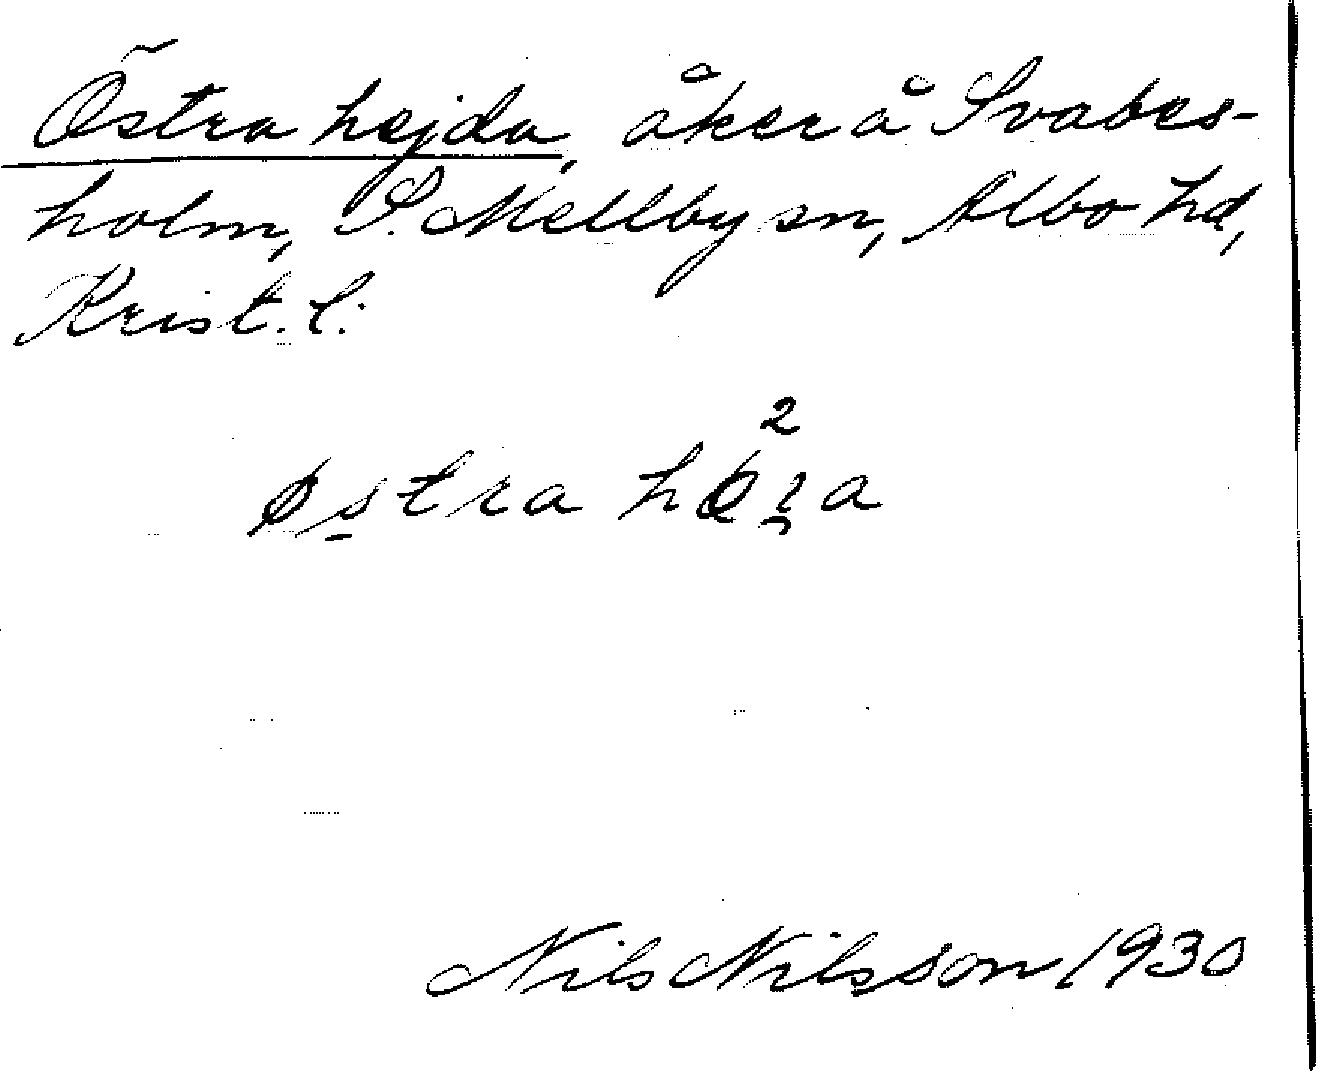 Östra hejda, åker å Svabes-
holm, S. Mellby sn, Albo hd,
Krist. l.
2
østra
Nils Nilsson 1930